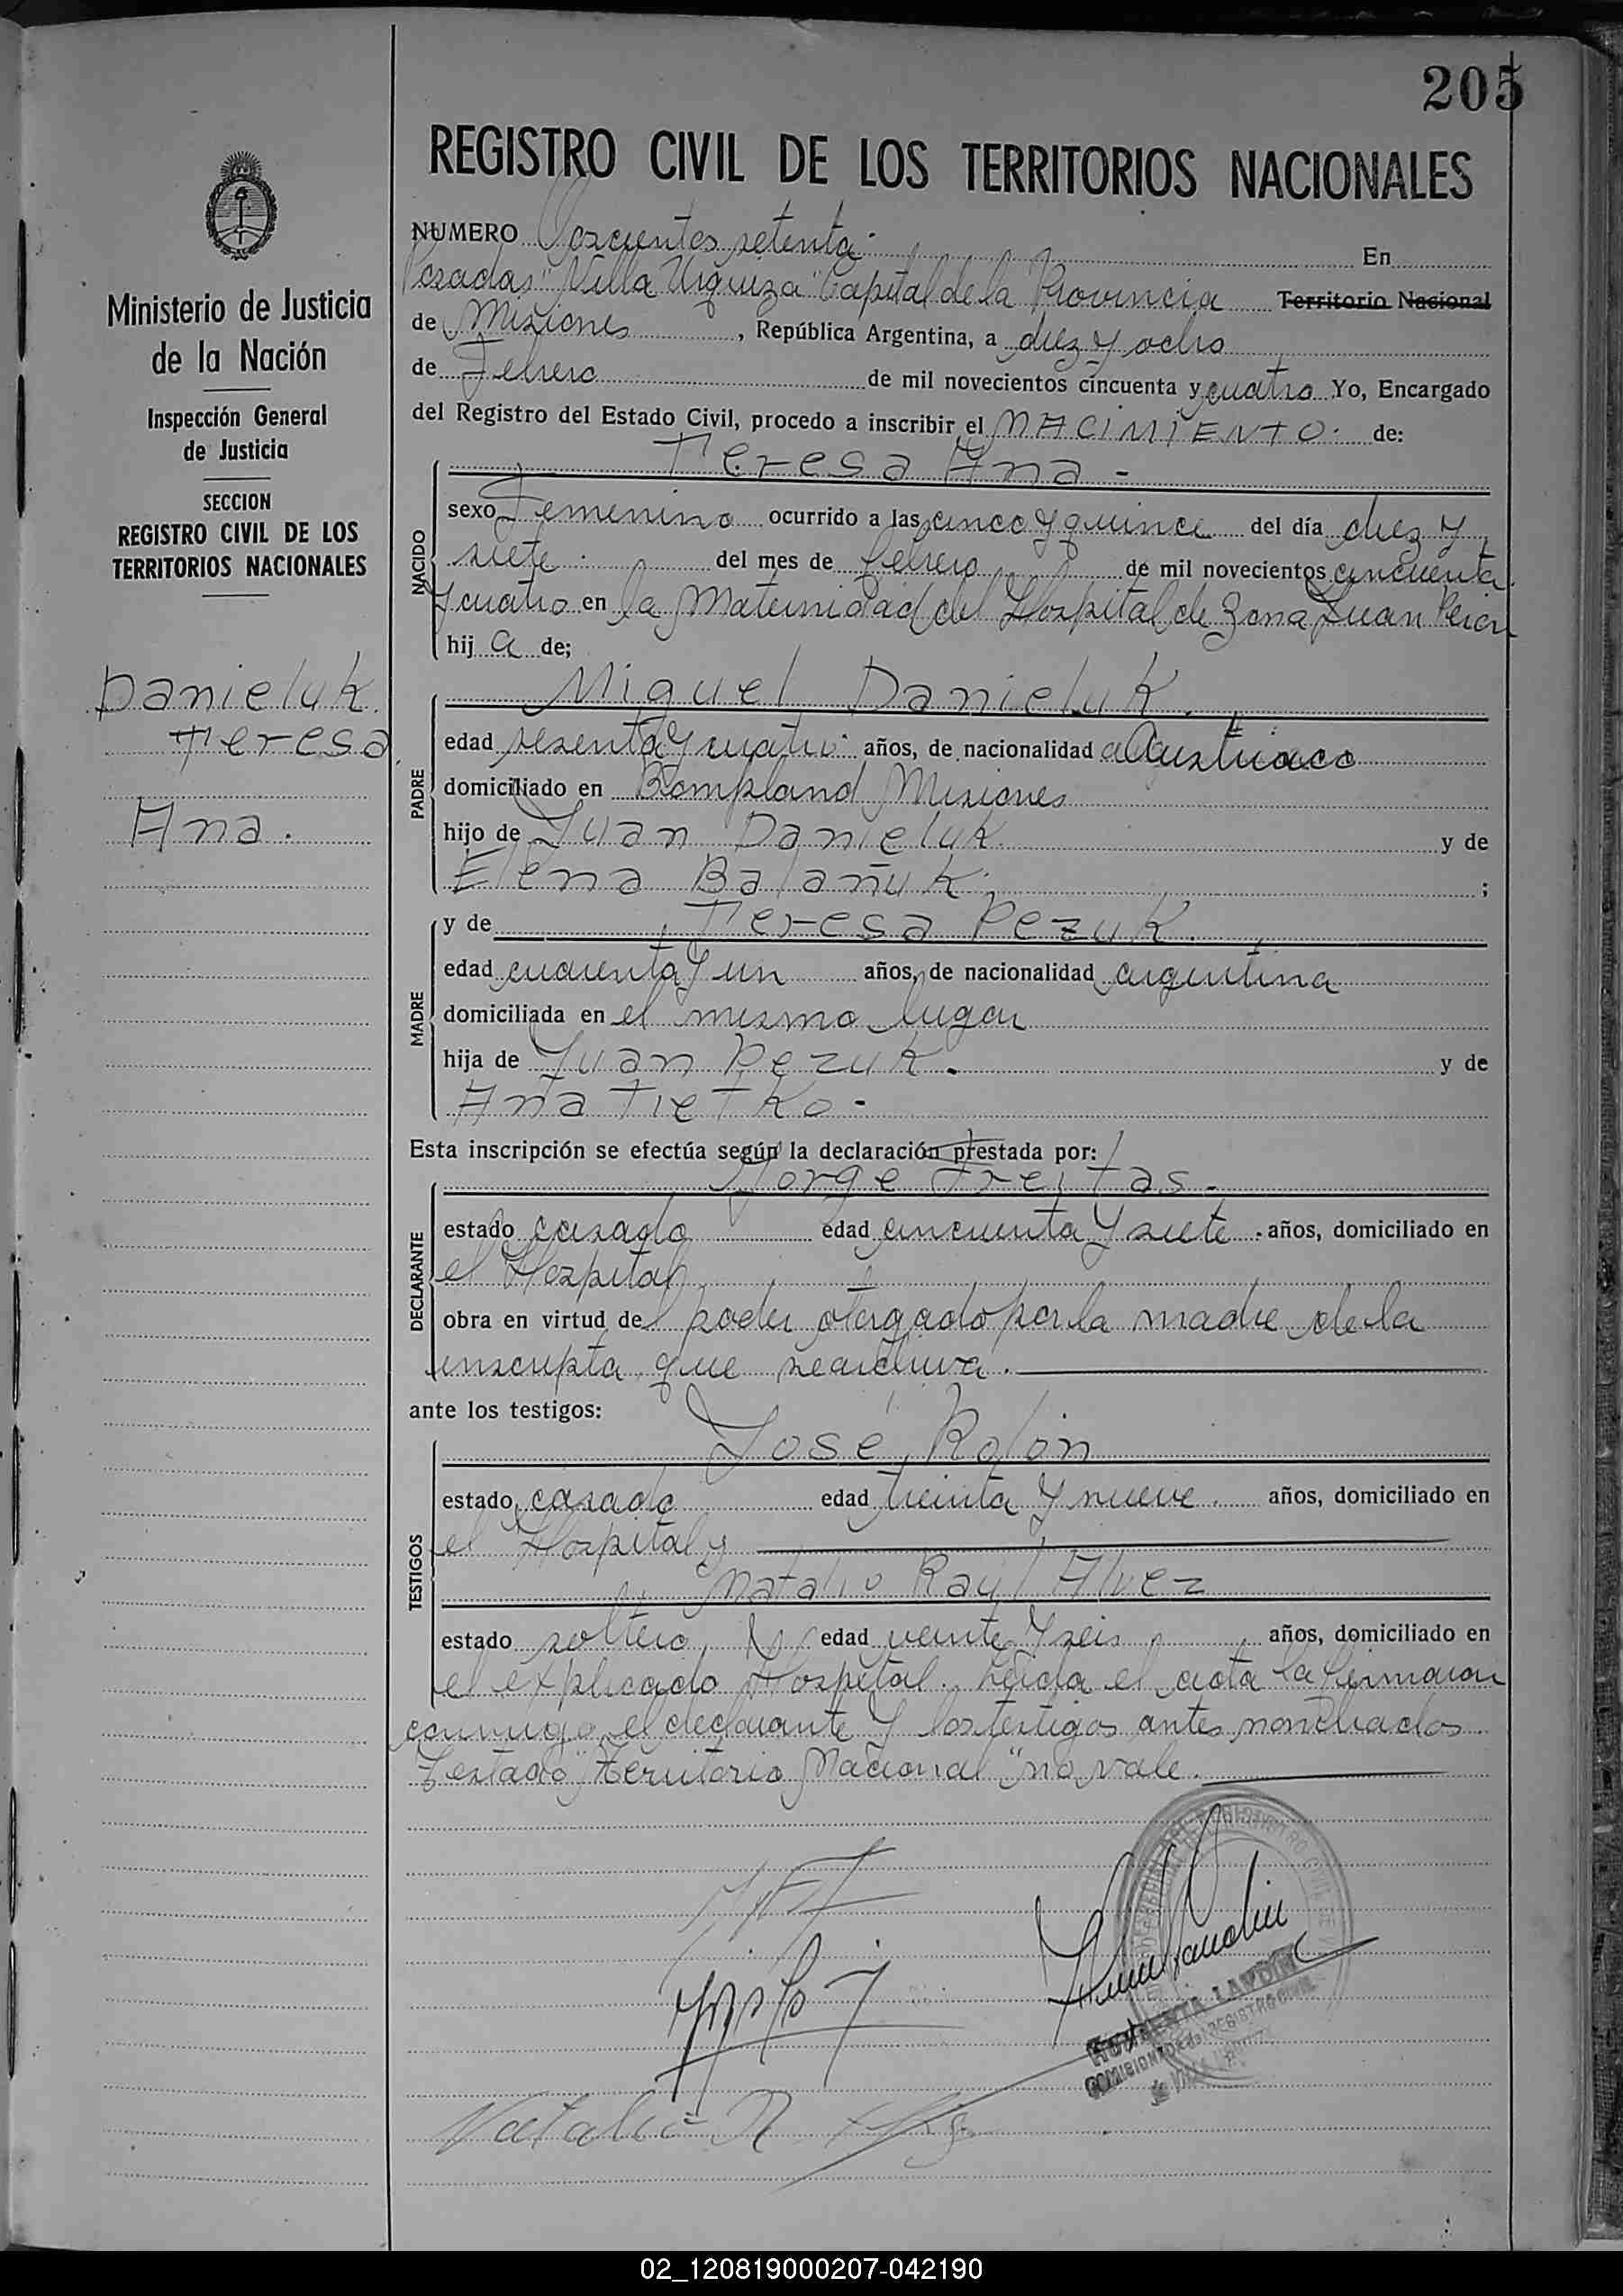 205
REGISTRO CIVIL DE LOS TERRITORIOS NACIONALES
Ministerio de Justicia
de la Nación
Inspección General
de Justicia
SECCION
REGISTRO CIVIL DE LOS
TERRITORIOS NACIONALES
Danieluk
Teresa
Ana.
NUMERO Doscientos setenta. En
Posadas "Villa Urquiza" Capital de la Provincia Territorio Nacional
de Misiones, República Argentina, a diez y ocho
de Febrero de mil novecientos cincuenta y cuatro Yo, Encargado
del Registro del Estado Civil, procedo a inscribir el NACIMIENTO. de:
Teresa Ana -
NACIDO
sexo Femenino ocurrido a las cinco y quince del día diez y
siete del mes de febrero de mil novecientos cincuenta
y cuatro en la Maternidad del Hospital de Zona Juan Perón
hij a de;
Miguel Danieluk.
PADRE
edad sesenta y cuatro años, de nacionalidad Austriaco
domiciliado en Bompland Misiones
hijo de Juan Danieluk y de
Elena Balañuk ;
MADRE
y de Teresa Pezuk.
edad cuarenta y un años, de nacionalidad argentina
domiciliada en el mismo lugar
hija de Juan Pezuk. y de
Ana Tietko -
Esta inscripción se efectúa según la declaración prestada por:
Jorge Freitas.
DECLARANTE
estado casado edad cincuenta y siete. años, domiciliado en
el Hospital
obra en virtud del poder otorgado por la madre de la
inscripta que se archiva.
ante los testigos:
José Rolón
TESTIGOS
estado casado edad treinta y nueve. años, domiciliado en
el Hospital y
Natalio Raúl Alvez
estado soltero edad veinte y seis años, domiciliado en
el explicado Hospital. Leída el acta la firmaron
conmigo el declarante y los testigos antes nombrados.
Testado "Territorio Nacional" no vale.
Natalio R
02_120819000207-042190